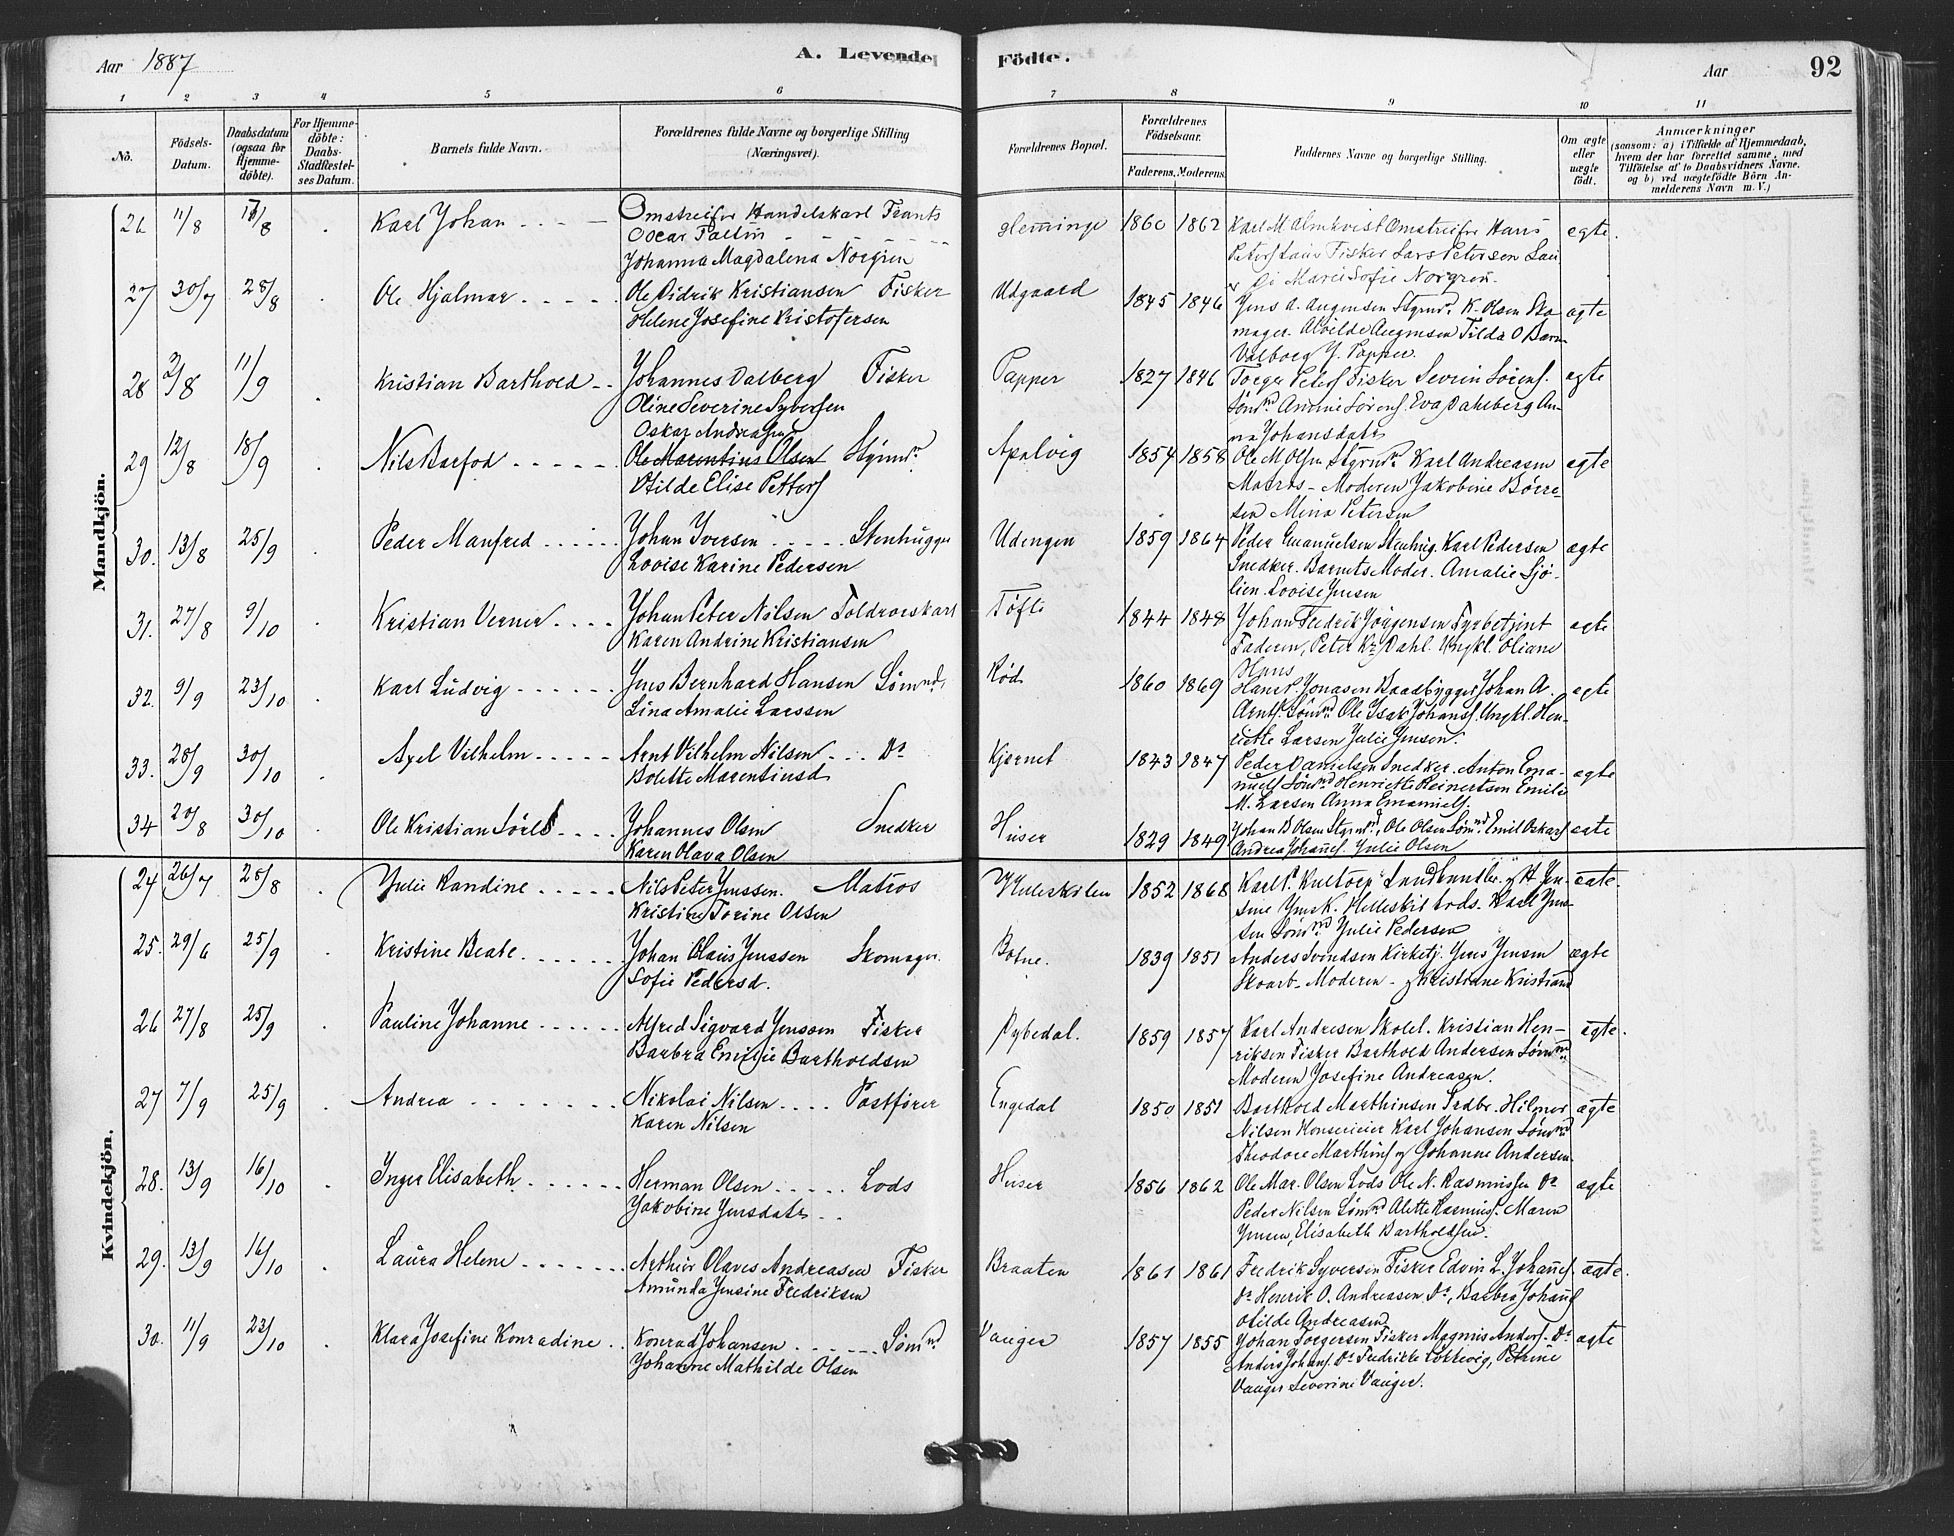 Aar 1887
A. Levende Födte.
Aar
92
1 2 3 4 5 6 7 8 9 10 11
No.
Födsels-Datum.
Daabsdatum (ogsaa for Hjemme-döbte).
For Hjemme-döbte: Daabs-Stadfestel-ses Datum.
Barnets fulde Navn.
Forældrenes fulde Navne og borgerlige Stilling (Næringsvei).
Forældrenes Bopæl.
Forældrenes Födselsaar.
Faderens. Moderens.
Faddernes Navne og borgerlige Stilling.
Om ægte eller uægte födt.
Anmærkninger
(saasom: a) i Tilfælde af Hjemmedaab, hvem der har forrettet samme, med Tilföielse af to Daabsvidners Navne. og b) ved uægtefödte Börn An-melderens Navn m. V.)
Mandkjön.
26 11/8 /8 Karl Johan Omstreifer Handelskarl Frants
Oscar Faltin
Johanna Magdalena Norgren
1860 1862 Karl Malmkvist Omstreifer Hans
Fisker Lars Petersen
Marie Sofie Norgren
egte.
27 30/7 28/8 Ole Hjalmar Ole Didrik Kristiansen Fisker
Helene Josefine Kristofersen
Udgaard 1845 1846 Jens A. Augensen Styrmd. K. Olsen Sko
mager. Alvilde Augensen Tilda O
Valborg J. Papper.
ægte
28 2/8 11/9 Kristian Barthold Johannes Dalberg Fisker
Oline Severine Syversen
Papper 1827 1846 Torger Peters Fisker Severin Sörens.
Sömd. Sörens. Eva Dahlberg An-
na Johansdatr
egte
29 12/8 18/9 Nils Barfod Oskar Andreassen
Ole Marentius Olsen Styrmd.
Otilde Elise Petters
Apalvig 1854 1858 Ole M Olsen Styrmd. Karl Andreasen
Matros - Moderen Jakobine Börre-
sen Mina Petersen
egte
30. 13/8 25/9 Peder Manfred Johan Iversen Stenhugger
Lovise Karine Pedersen
Udengen 1859 1864 Peder Emanuelsen Stenhug. Karl Pedersen
Snedker. Barnets Moder. Amalie Sjö-
lien. Lovise Jensen
ægte
31. 27/8 9/10 Kristian Verner Johan Peter Nilsen Toldroerskarl
Karen Andrine Kristiansen
Töfte 1844 1848 Johan Fredrik Jörgensen Fyrbetjent
Faderen, Peter Kr. Dahl. Ungkl. Oliane
Hans
egte
32. 9/9 23/10 Karl Ludvig Jens Bernhard Hansen Sömnd.
Lina Amalie Larssen
Röd 1860 1869 Hans Jonasen Baadbygger Johan A.
Arnts. Sömd. Ole Isak Johans. Ungkl. Hen-
riette Larsen Julie Jensen.
egte
33. 28/9 30/10 Axel Vilhelm Arnt Vilhelm Nilsen Do
Bolette Marentiusd
Kjernet 1843 1847 Peder Danielsen Snedker. Anton Ema-
nuels Sömd Henriette Reinertsen Emilie
M. Larsen Anna Emanuels.
ægte
34 20/8 30/10 Ole Kristian Johannes Olsen Snedker
Karen Olava Olsen
Huser 1829 1849 Johan B Olsen Styrmd, Ole Olsen Sömd. Emil Oskars
Andrea Johans. Julie Olsen
egte
Kvindekjön.
24 26/7 28/8 Julie Randine Nils Peter Jenssen. Matros
Kristine Torine Olsen
Helleskilen 1852 1868 Karl P. Kultorp Landhandler. H. Jen-
sine Jens K. Helleskil Lods. Karl Jens-
sen Sömd Julie Pedersen
egte.
25. 29/6 25/9 Kristine Beate Johan Olaus Jenssen Skomager.
Sofie Pedersd.
Botne. 1839 1851 Anders Svindsen Kirketj. Jens Jensen
Skoarb. Moderen - Kristiane Kristians
ægte
26 27/8 25/9 Pauline Johanne Alfred Sigvard Jenssen Fisker
Barbra Emilie Bartholdsen
Rybedal. 1859 1857 Karl Andresen Skolel. Kristian Hen-
riksen Fisker Barthold Andersen Sömd
Moderen Josefine Andreasen.
egte.
27 7/9 25/9 Andrea Nikolai Nilsen Postförer
Karen Nilsen
Engedal 1850 1851 Barthold Marthinsen Hilmer
Nilsen Karl Johansen Sömd
Theodore Marthins og Johanne Andersen
ægte
28. 13/9 16/10 Inger Elisabeth Herman Olsen Lods
Jakobine Jensdatr
Huser 1856 1862 Ole Mar. Olsen Lods Ole N. Rasmussen Do
Peder Nilsen Sömd Alette Rasmus. Maren
Jensen, Elisabeth Bartholdsen.
ægte
29. 13/9 16/10 Laura Helene Arthur Olaves Andreasen Fisker
Amunda Jensine Fredriksen
Braaten 1861 1861 Fredrik Syversen Fisker Edvin L. Johans.
Do Henrik O. Andreassen Do, Barbra Johans
Otilde Andreasen
ægte.
30. 11/9 23/10 Klara Josefine Konradine Konrad Johansen Sömnd
Johanne Mathilde Olsen
Vauger 1857 1855 Johan Torgersen Fisker Magnus Anders. Do
Anders Johans. Do Fredrikke Lökkevig, Petrine
Vauger Severine Vauger.
ægte